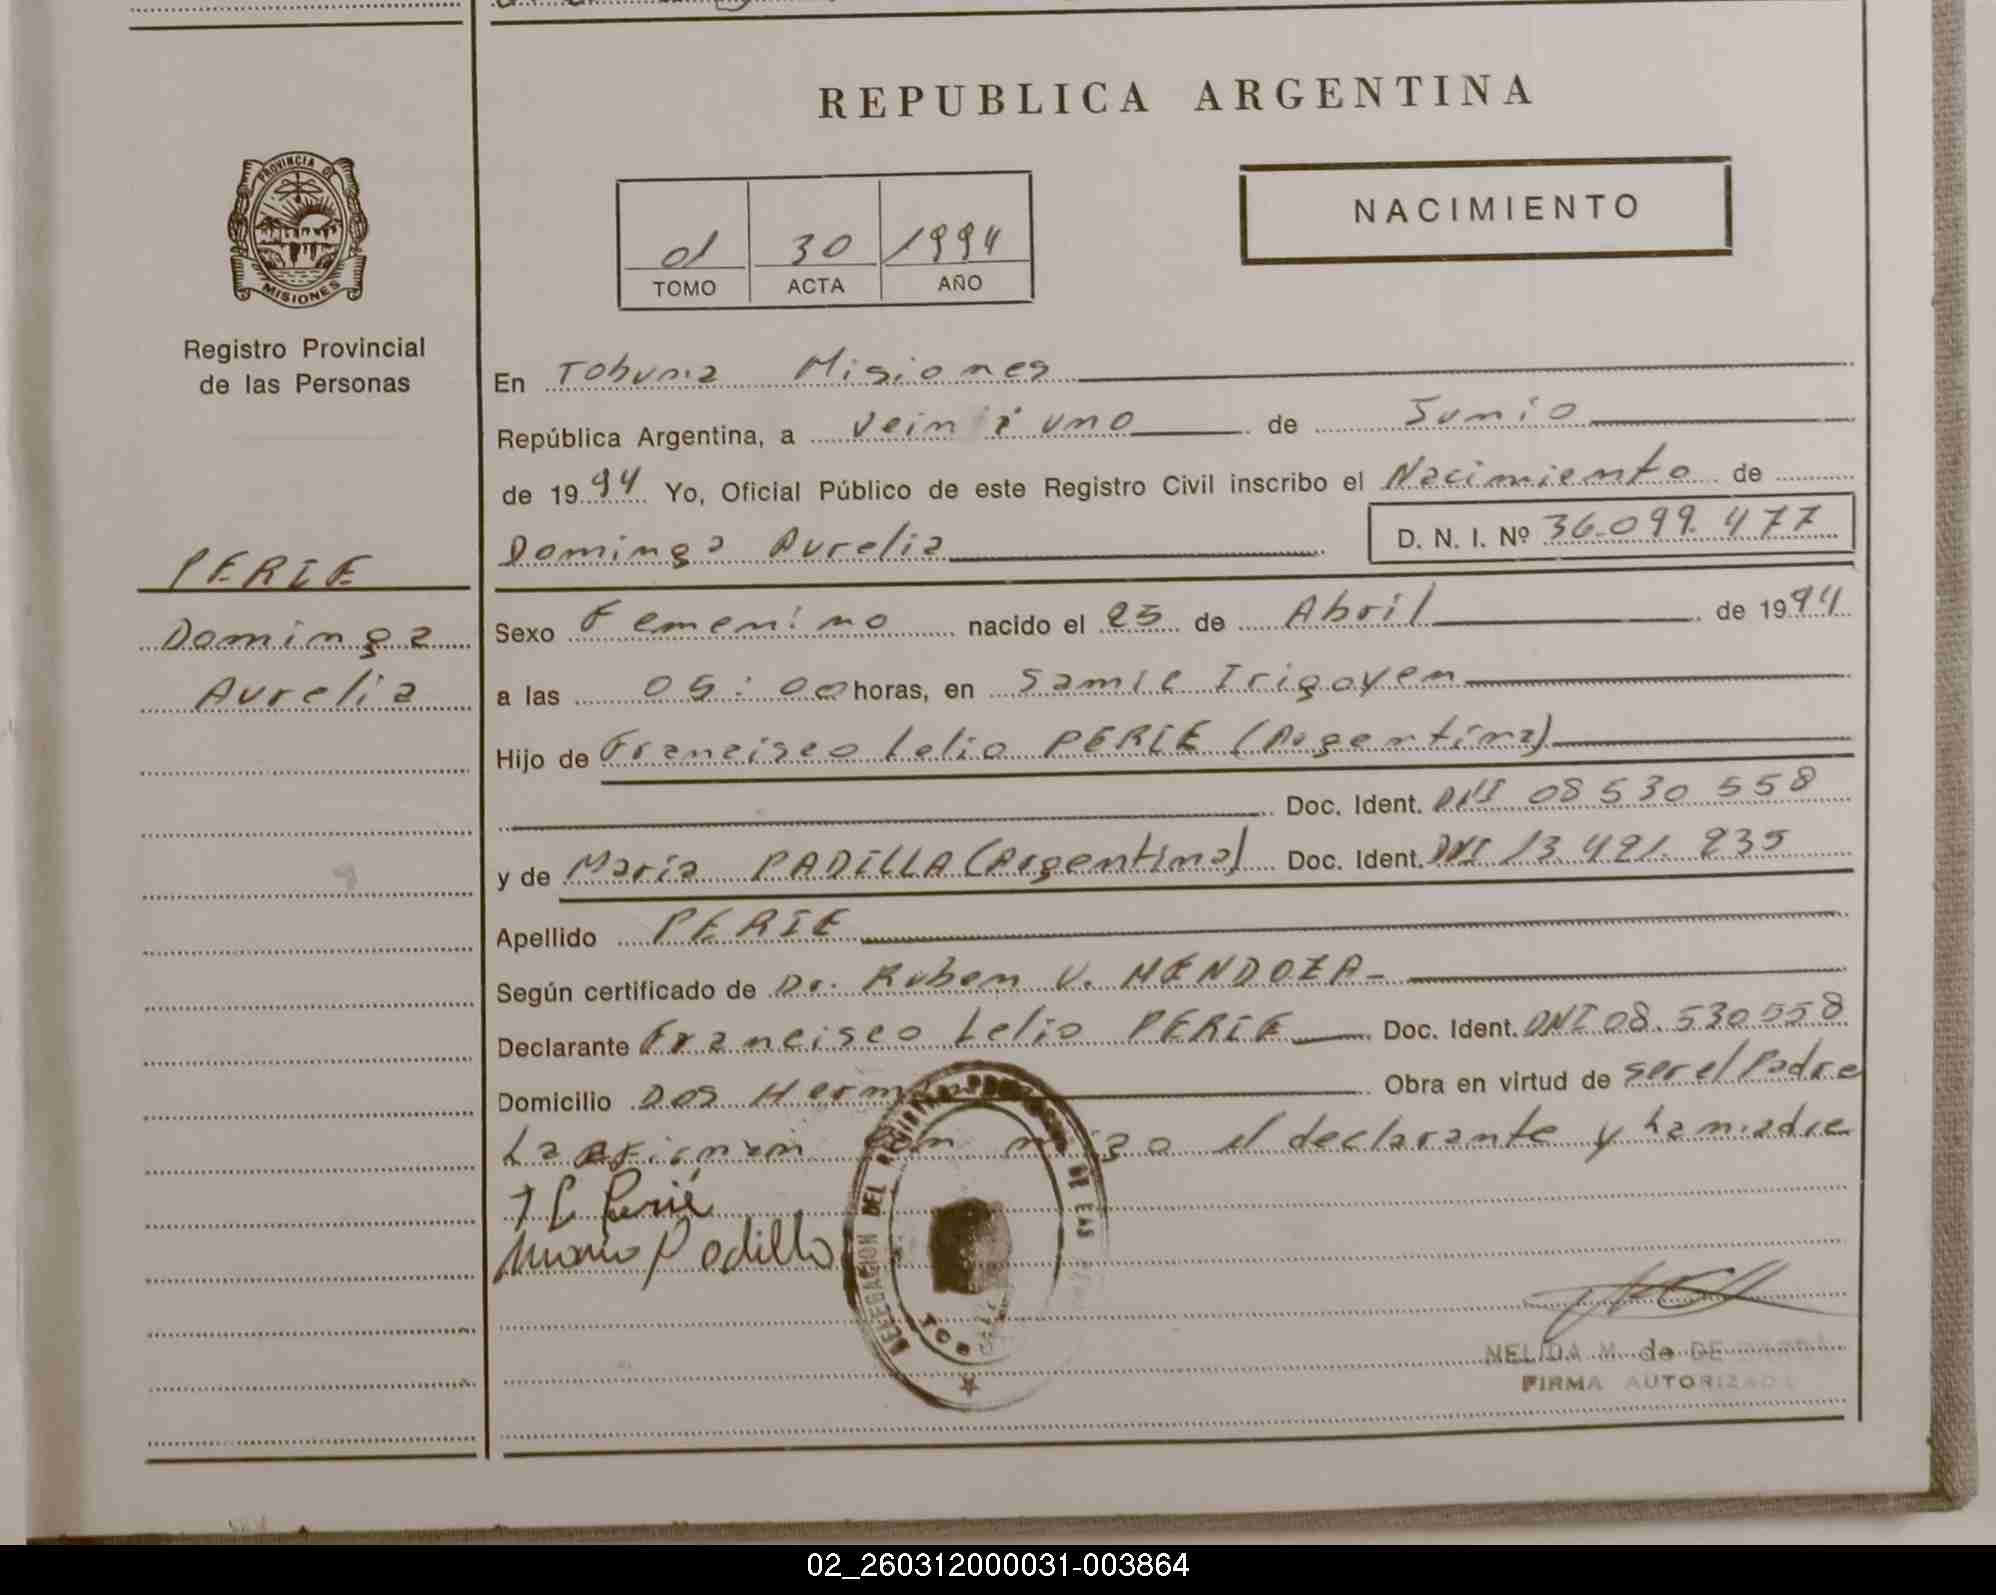 REPUBLICA ARGENTINA
PROVINCIA DE
MISIONES
Registro Provincial
de las Personas
01 30 1994
TOMO ACTA AÑO
NACIMIENTO
En Tobuna Misiones
República Argentina, a Veintiuno de Junio
de 1994 Yo, Oficial Público de este Registro Civil inscribo el Nacimiento de
Dominga Aurelia D. N. I. Nº 36.099.477
PERIE
Dominga
Aurelia
Sexo Femenino nacido el 25 de Abril de 1994
a las 05:00 horas, en Samic Irigoyen
Hijo de Francisco Lelio PERIE (Argentina)
Doc. Ident. DNI 08 530 558
y de Maria PADILLA (Argentina) Doc. Ident. DNI 13 421. 235
Apellido PERIE
Según certificado de Dr. Ruben V. MENDOZA-
Declarante Francisco Lelio PERIE Doc. Ident. DNI 08. 530 558
Domicilio Dos Herm Obra en virtud de ser el Padre
el declarante y la madre
F L Perié
Maria Padilla
DELEGACION DEL REGISTRO PROVINCIAL DE LAS
NELIDA M. de DE
FIRMA AUTORIZADA
02_260312000031-003864